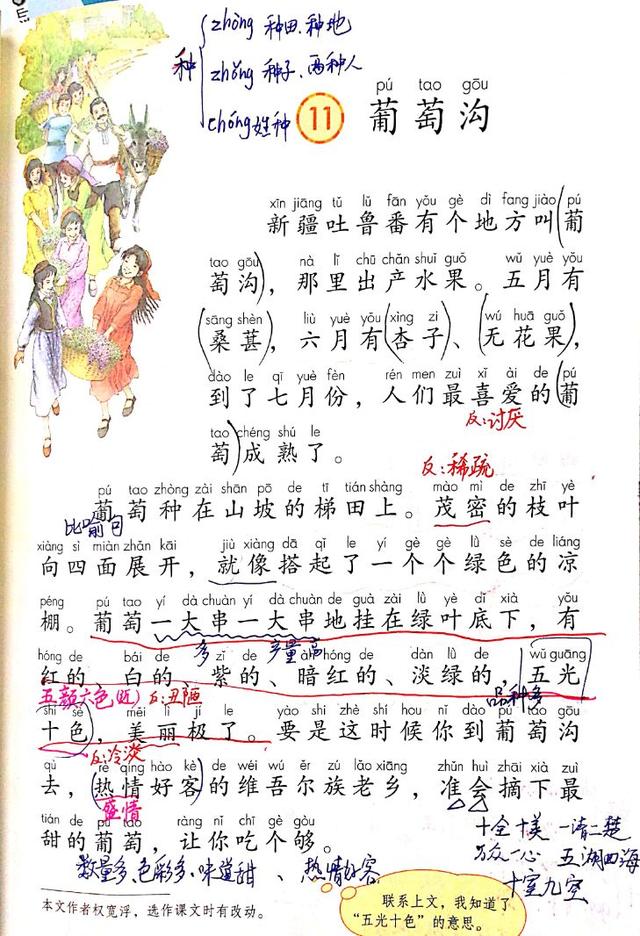 zhòng 种田、种地
种 zhǒng 种子、两种人
chóng 姓种
pú tao gōu
11 葡萄沟
xīn jiāng tǔ lǔ fān yǒu gè dì fang jiào pú
新疆吐鲁番有个地方叫(葡
tao gōu nà lǐ chū chǎn shuǐ guǒ wǔ yuè yǒu
萄沟),那里出产水果。五月有
sāng shèn liù yuè yǒu xìng zi wú huā guǒ
(桑葚),六月有(杏子)、(无花果),
dào le qī yuè fèn rén men zuì xǐ ài de pú
到了七月份,人们最喜爱的(葡
反:讨厌
tao chéng shú le
萄)成熟了。
反:稀疏
pú tao zhòng zài shān pō de tī tián shàng mào mì de zhī yè
葡萄种在山坡的梯田上。茂密的枝叶
比喻句
xiàng sì miàn zhǎn kāi jiù xiàng dā qǐ le yí gè gè lǜ sè de liáng
向四面展开,就像搭起了一个个绿色的凉
péng pú tao yí dà chuàn yí dà chuàn de guà zài lǜ yè dǐ xià yǒu
棚。葡萄一大串一大串地挂在绿叶底下,有
多 产量高
hóng de bái de zǐ de àn hóng de dàn lǜ de wǔ guāng
红的、白的、紫的、暗红的、淡绿的,五光
五颜六色(近) 反:丑陋 品种多
shí sè měi lì jí le yào shi zhè shí hou nǐ dào pú tao gōu
十色,美丽极了。要是这时候你到葡萄沟
反:冷淡
qù rè qíng hào kè de wéi wú ěr zú lǎo xiāng zhǔn huì zhāi xià zuì
去,(热情好客)的维吾尔族老乡,准会摘下最
盛情
tián de pú tao ràng nǐ chī gè gòu
甜的葡萄,让你吃个够。
十全十美 一清二楚
万众一心 五湖四海
十室九空
数量多、色彩多、味道甜、热情好客
本文作者权宽浮,选作课文时有改动。
联系上文,我知道了
“五光十色”的意思。